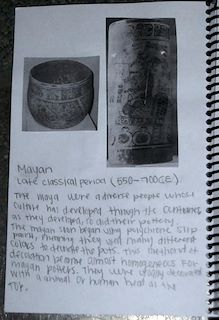 Mayan
Late classical period (550-700CE)
The maya were a diverse people whose
culture has developed through the centuries
as they developed, so did their pottery.
The mayan soon began using polychrome slip
paint, meaning they used many different
colors to decorate the pots. This method of
decoration became almost homogenous for
mayan potters. They were usually decorated
with a animal or human head at the
top.